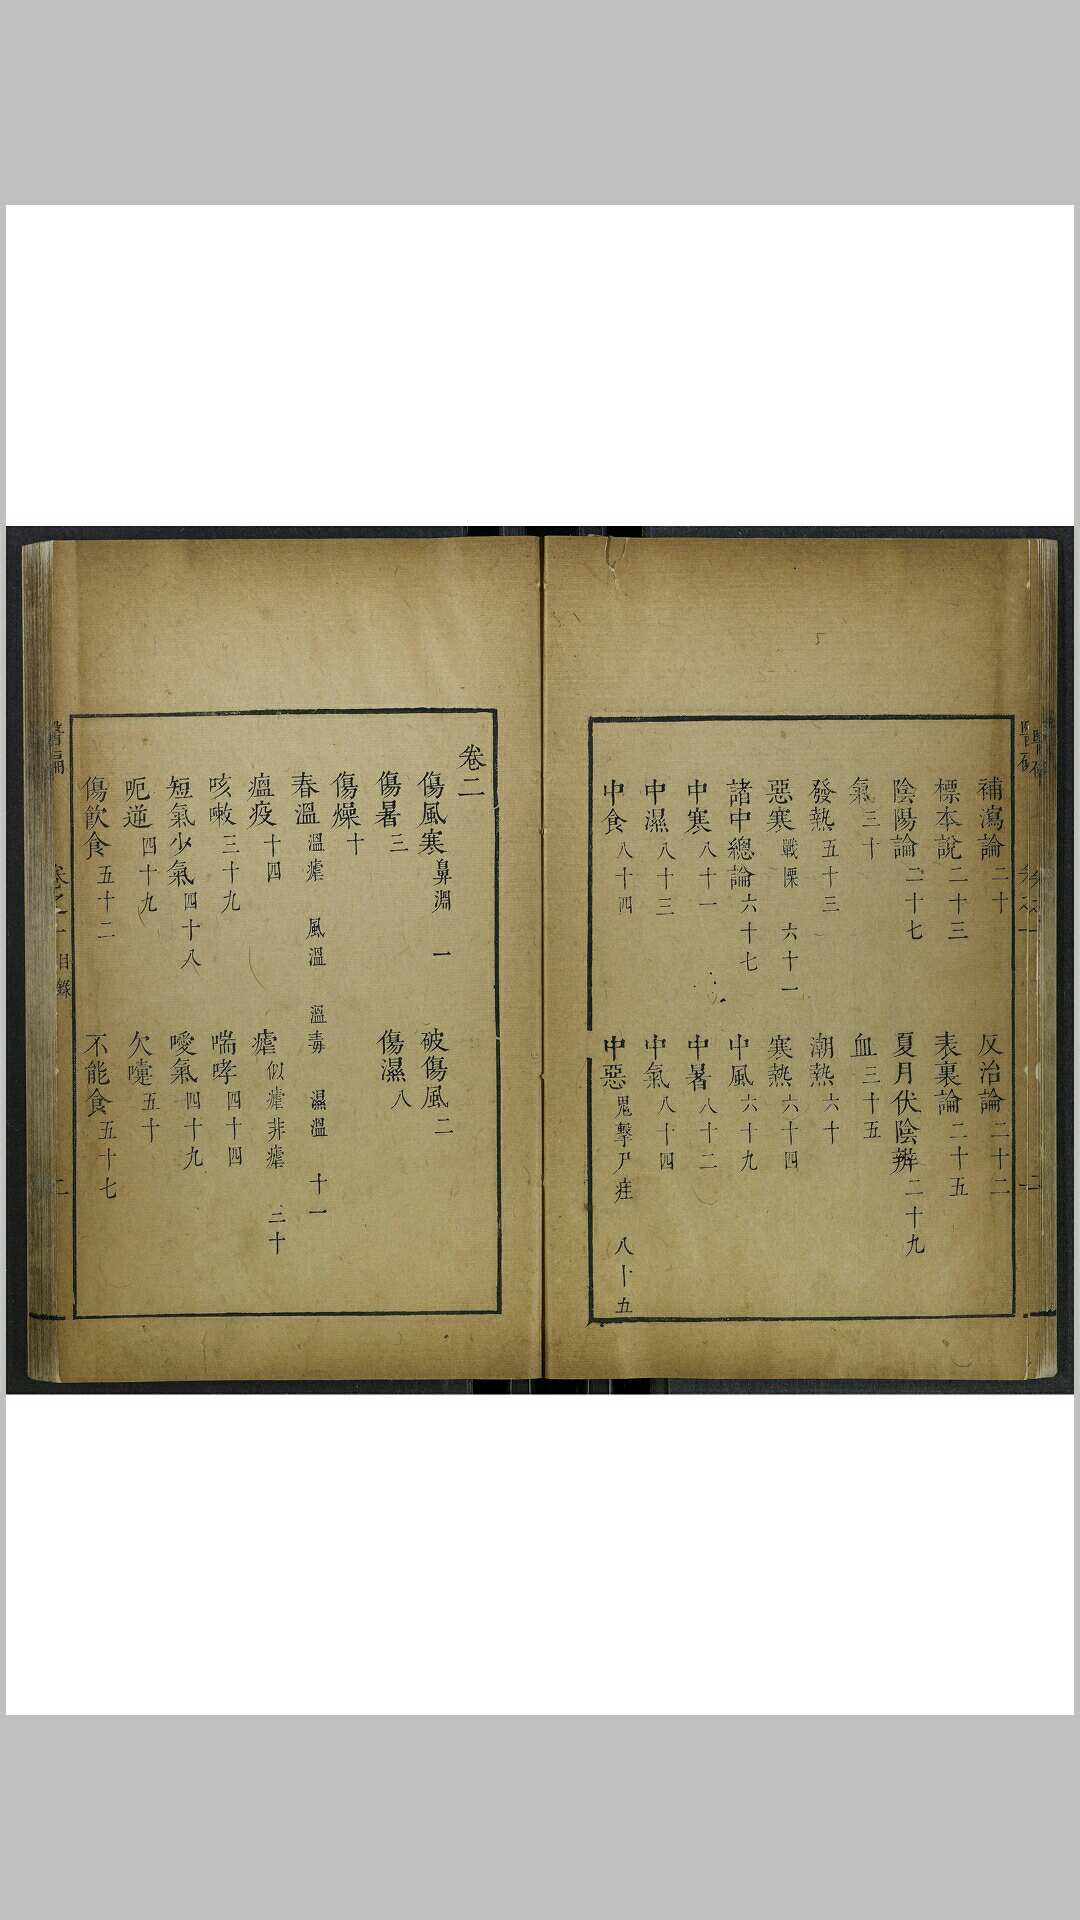 補瀉論二十　反治論二十二
標本說二十三　表裏論二十五
陰陽論二十七　夏月伏陰辨二十九
氣三十　血三十五
發熱五十三　潮熱六十
惡寒戰慄　六十一　寒熱六十四
諸中總論六十七　中風六十九
中寒八十一　中暑八十二
中濕八十三　中氣八十四
中食八十四　中惡鬼擊尸疰　八十五
卷二
傷風寒鼻淵　一　破傷風二
傷暑三　傷濕八
傷燥十
春溫溫瘧　風溫　溫毒　濕溫　十一
瘟疫十四　瘧似瘧非瘧　三十
咳嗽三十九　喘哮四十四
短氣少氣四十八　噯氣四十九
呃逆四十九　欠嚏五十
傷飲食五十二　不能食五十七
目錄
二